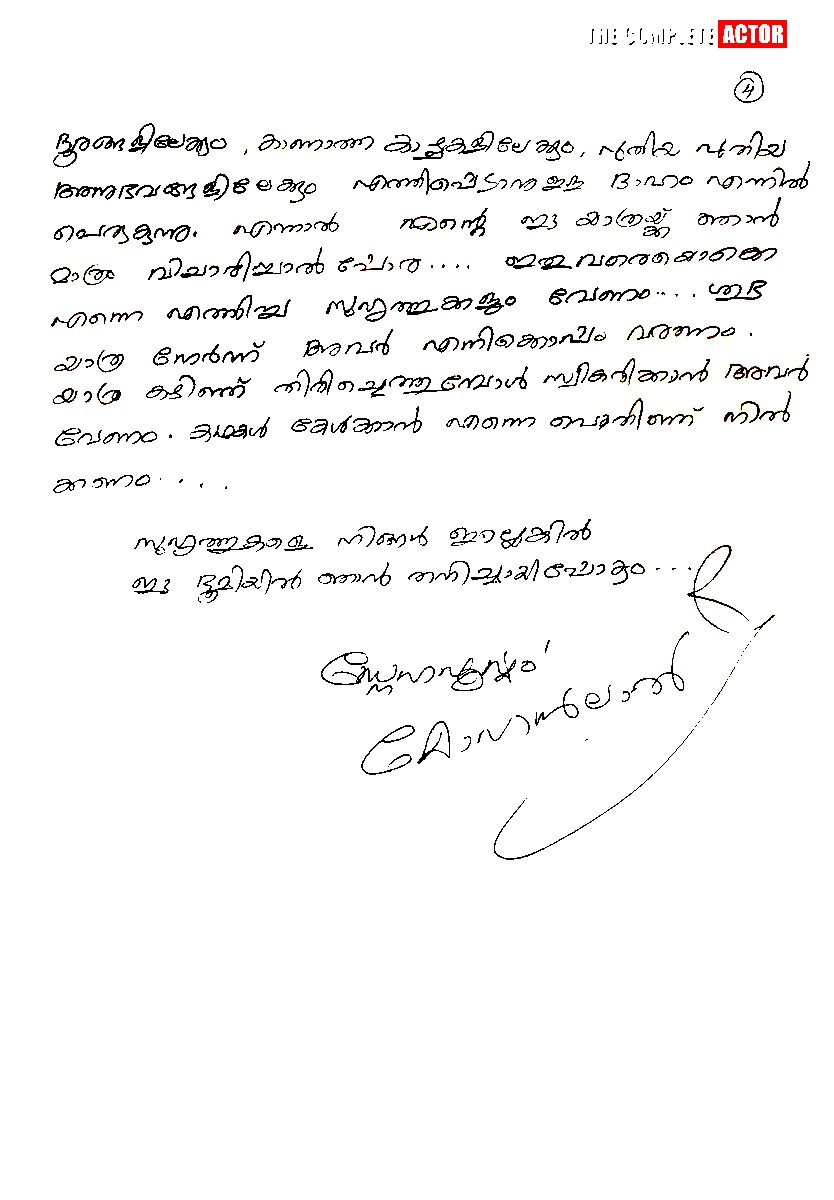 THE COMPLETE ACTOR
4
ദൂരങ്ങളിലേക്കും, കാണാത്ത കാഴ്ചകളിലേക്കും, പുതിയ പുതിയ
അനുഭവങ്ങളിലേക്കും എത്തിപ്പെടാനുള്ള ദാഹം എന്നിൽ
പെരുകുന്നു. എന്നാൽ എന്റെ ഈ യാത്രയ്ക്ക് ഞാൻ
മാത്രം വിചാരിച്ചാൽ പോര.... ഇതുവരെയൊക്കെ
എന്നെ എത്തിച്ച സുഹൃത്തുക്കളും വേണം.... ശുഭ
യാത്ര നേർന്ന് അവർ എനിക്കൊപ്പം വരണം.
യാത്ര കഴിഞ്ഞ് തിരിച്ചെത്തുമ്പോൾ സ്വീകരിക്കാൻ അവർ
വേണം. കഥകൾ കേൾക്കാൻ എന്നെ പൊതിഞ്ഞ് നിൽ
ക്കണം....
സുഹൃത്തുക്കളെ നിങ്ങൾ ഇല്ലെങ്കിൽ
ഈ ഭൂമിയിൽ ഞാൻ തനിച്ചായിപ്പോകും...
സ്നേഹപൂർവ്വം
മോഹൻലാൽ